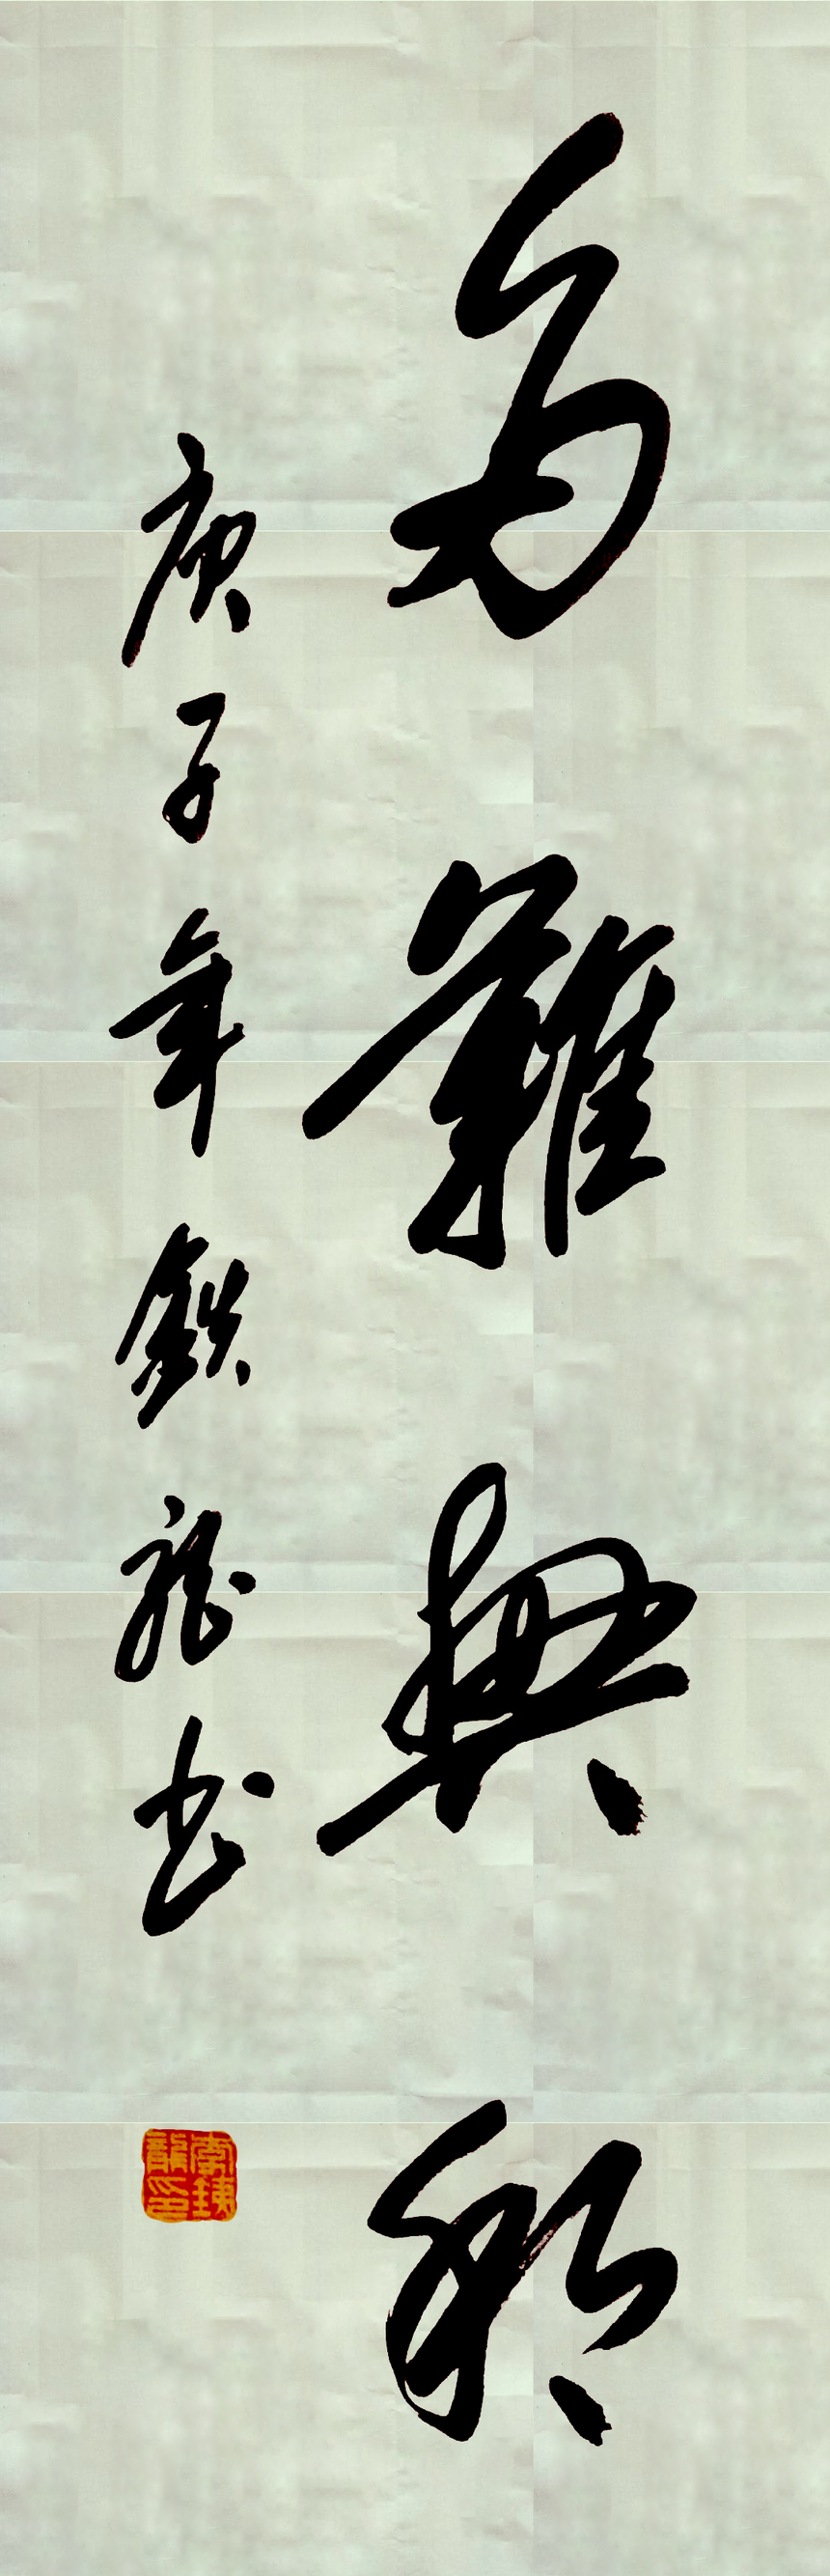 多難興邦
庚子年鉄龍书
李鉄龍印